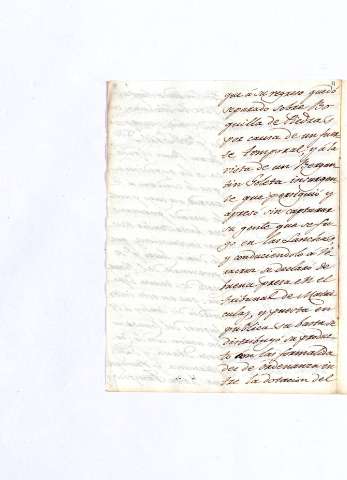 que a su regreso quedó
separado sobre Bo
quilla de Piedras
por causa de un fuer
te temporal, y á la
vista de un Bergan
tin Goleta insurgen
te que persiguió y
apresó sin capturar
su gente que se fu
gó en las Lanchas,
y conduciendolo a Ve
racruz se declaró de
buena presa en el
tribunal de Matri
culas, y puesta en
publica subasta se
distribuyó su produc
to con las formalida
des de ordenanza en
tre la dotacion del